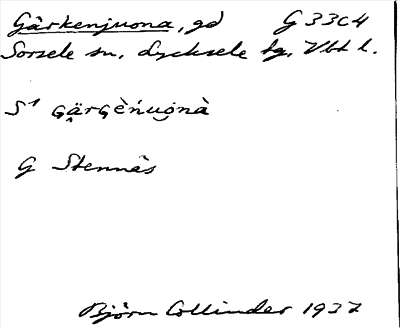 Gärkenjuona, gd G 33C4
Sorsele sn, Lycksele lg, Vbt l.
S¹ gärgèńuo̯nà
G Stennäs
Björn Collinder 1937